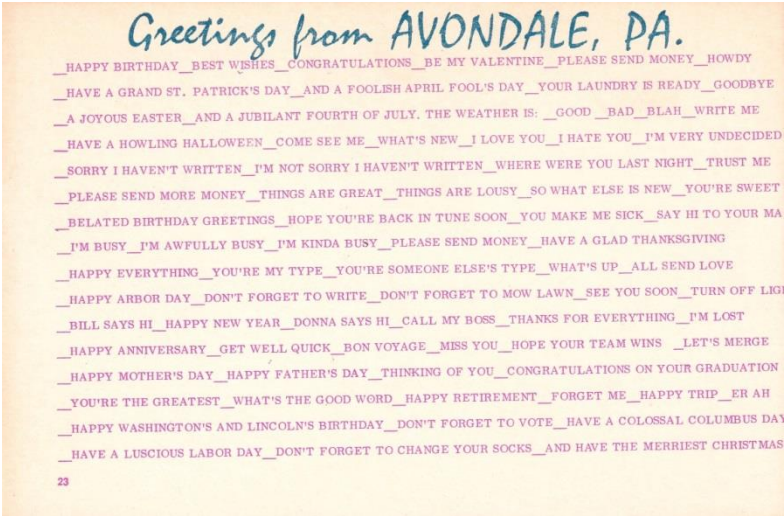 Greetings from AVONDALE, PA.
__HAPPY BIRTHDAY__BEST WISHES__CONGRATULATIONS__BE MY VALENTINE__PLEASE SEND MONEY__HOWDY
__HAVE A GRAND ST. PATRICK'S DAY__AND A FOOLISH APRIL FOOL'S DAY__YOUR LAUNDRY IS READY__GOODBYE
__A JOYOUS EASTER__AND A JUBILANT FOURTH OF JULY. THE WEATHER IS: __GOOD __BAD__BLAH__WRITE ME
__HAVE A HOWLING HALLOWEEN__COME SEE ME__WHAT'S NEW__I LOVE YOU__I HATE YOU__I'M VERY UNDECIDED
__SORRY I HAVEN'T WRITTEN__I'M NOT SORRY I HAVEN'T WRITTEN__WHERE WERE YOU LAST NIGHT__TRUST ME
__PLEASE SEND MORE MONEY__THINGS ARE GREAT__THINGS ARE LOUSY__SO WHAT ELSE IS NEW__YOU'RE SWEET
__BELATED BIRTHDAY GREETINGS__HOPE YOU'RE BACK IN TUNE SOON__YOU MAKE ME SICK__SAY HI TO YOUR MA
__I'M BUSY__I'M AWFULLY BUSY__I'M KINDA BUSY__PLEASE SEND MONEY__HAVE A GLAD THANKSGIVING
__HAPPY EVERYTHING__YOU'RE MY TYPE__YOU'RE SOMEONE ELSE'S TYPE__WHAT'S UP__ALL SEND LOVE
__HAPPY ARBOR DAY__DON'T FORGET TO WRITE__DON'T FORGET TO MOW LAWN__SEE YOU SOON__TURN OFF LIG
__BILL SAYS HI__HAPPY NEW YEAR__DONNA SAYS HI__CALL MY BOSS__THANKS FOR EVERYTHING__I'M LOST
__HAPPY ANNIVERSARY__GET WELL QUICK__BON VOYAGE__MISS YOU__HOPE YOUR TEAM WINS __LET'S MERGE
__HAPPY MOTHER'S DAY__HAPPY FATHER'S DAY__THINKING OF YOU__CONGRATULATIONS ON YOUR GRADUATION
__YOU'RE THE GREATEST__WHAT'S THE GOOD WORD__HAPPY RETIREMENT__FORGET ME__HAPPY TRIP__ER AH
__HAPPY WASHINGTON'S AND LINCOLN'S BIRTHDAY__DON'T FORGET TO VOTE__HAVE A COLOSSAL COLUMBUS DAY
__HAVE A LUSCIOUS LABOR DAY__DON'T FORGET TO CHANGE YOUR SOCKS__AND HAVE THE MERRIEST CHRISTMAS
23